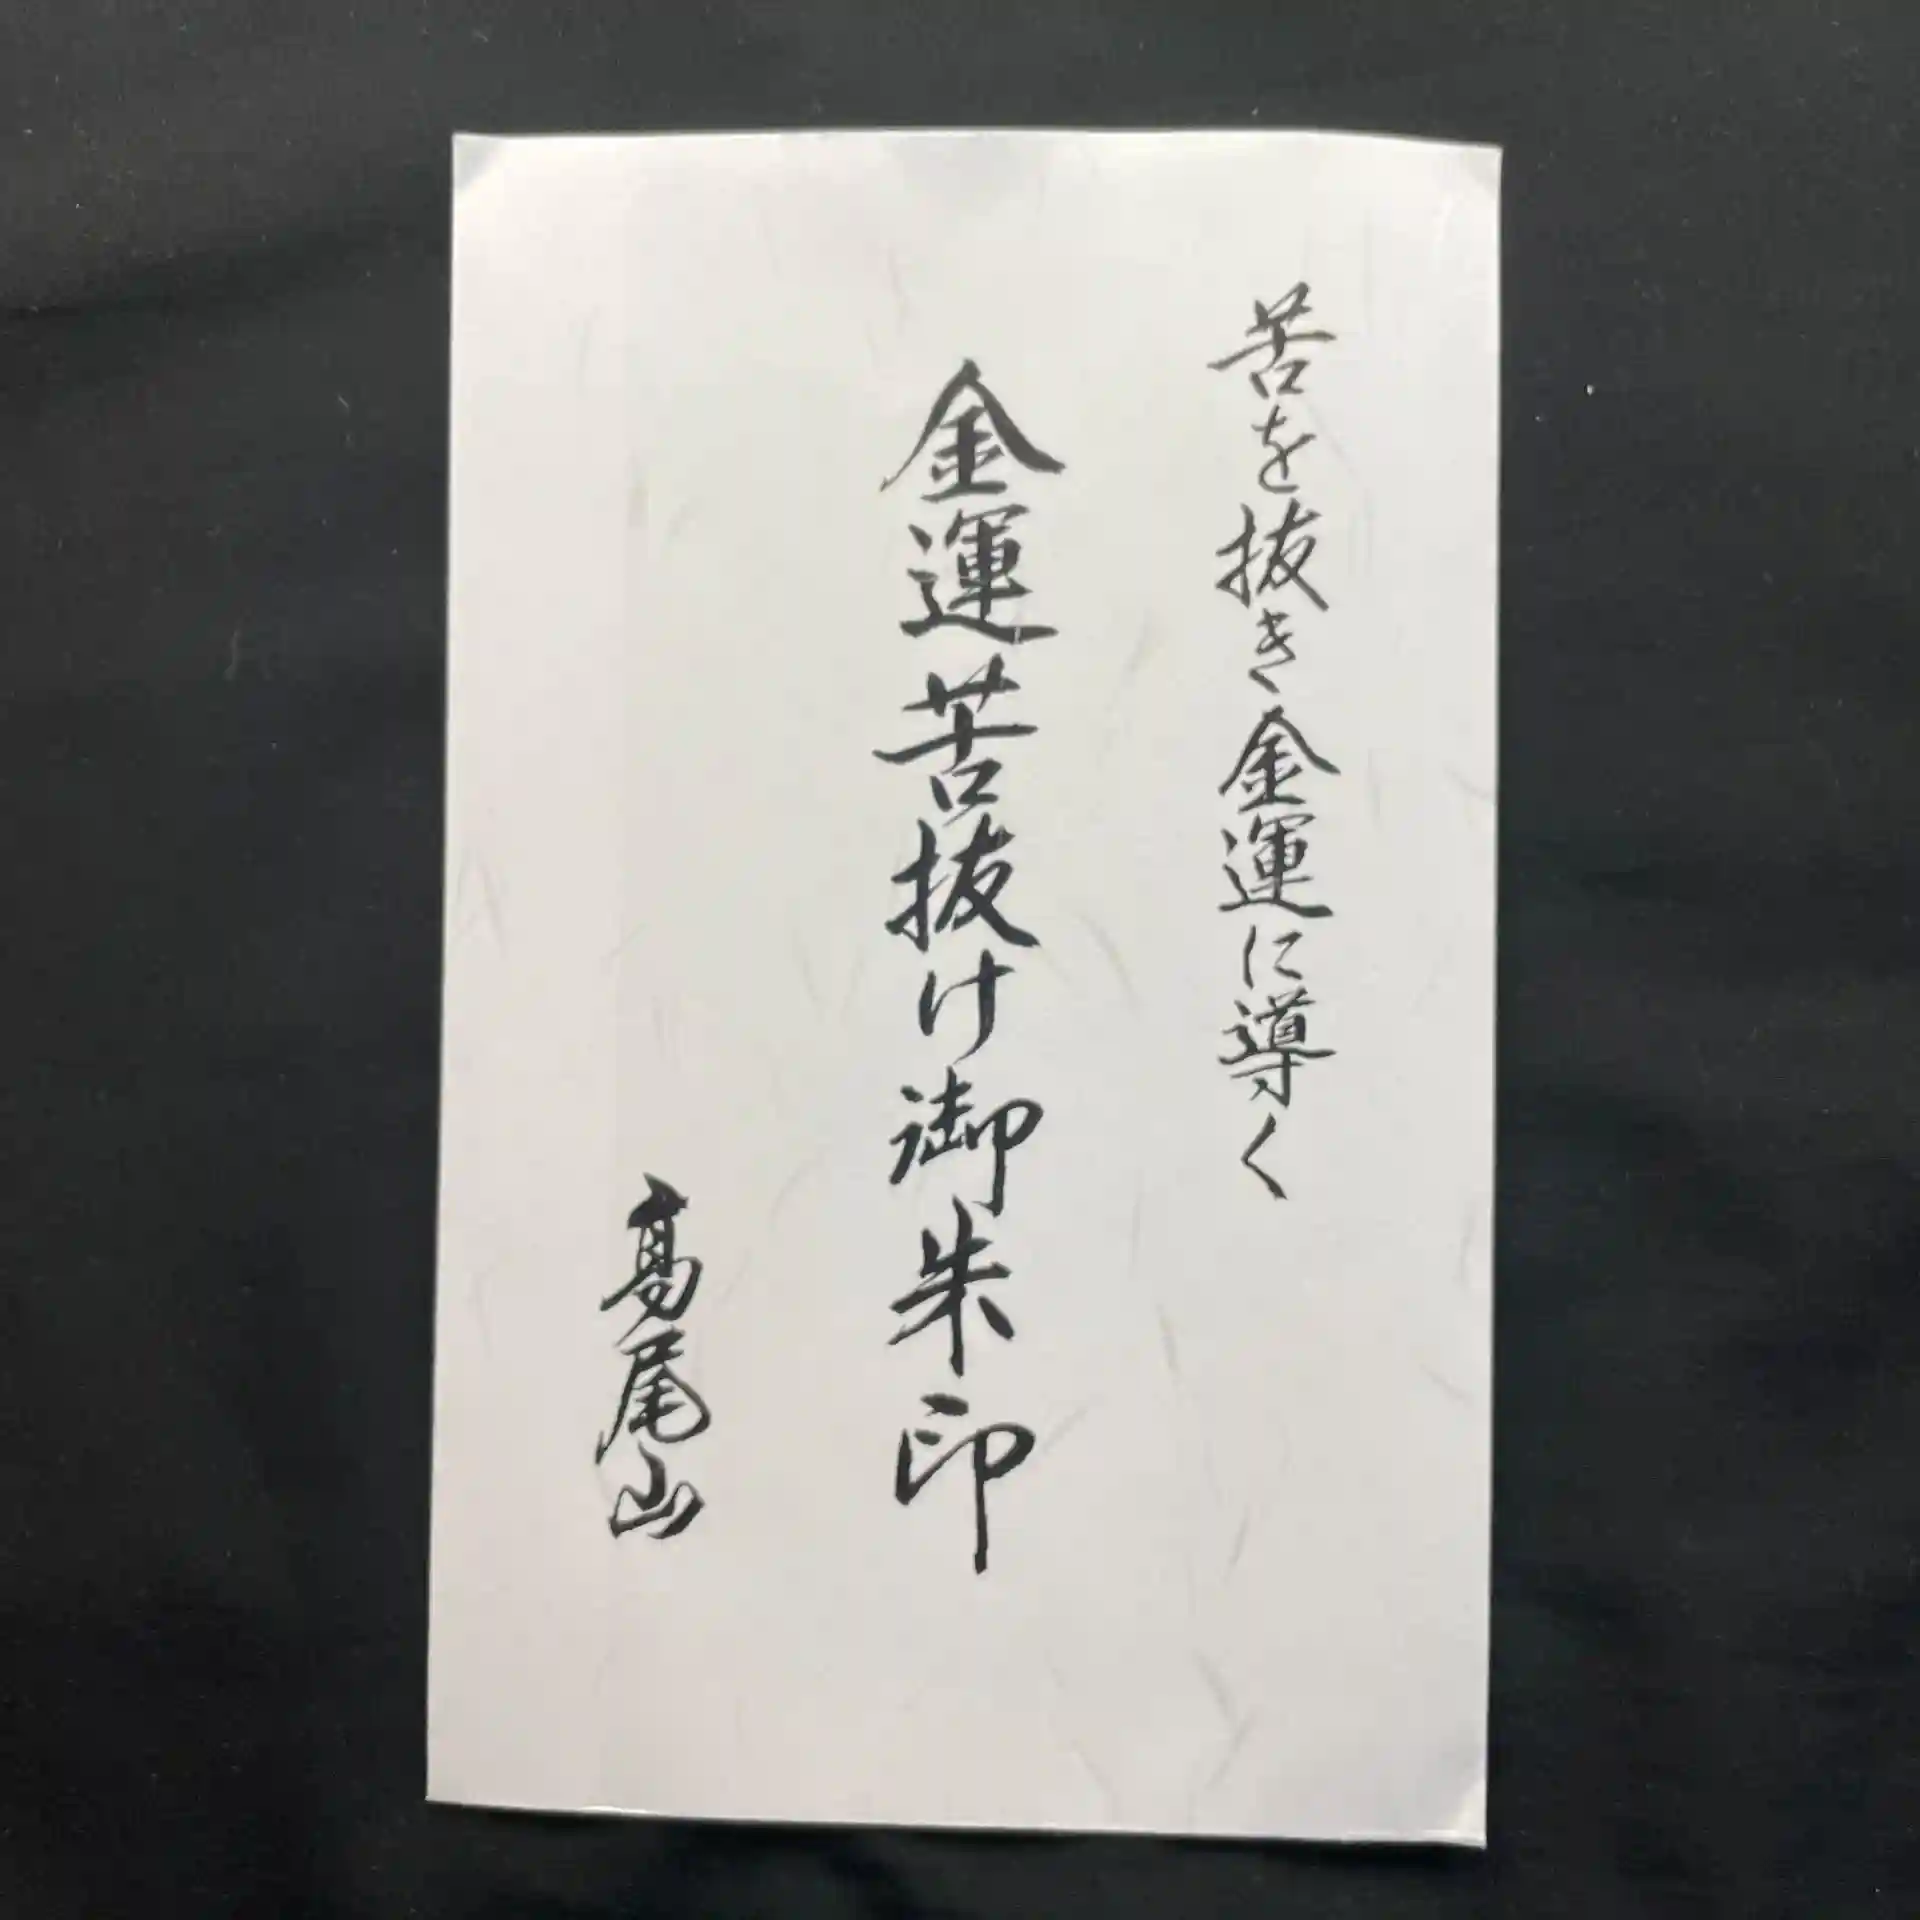 苦を抜き金運に導く
金運苦抜け御朱印
高尾山